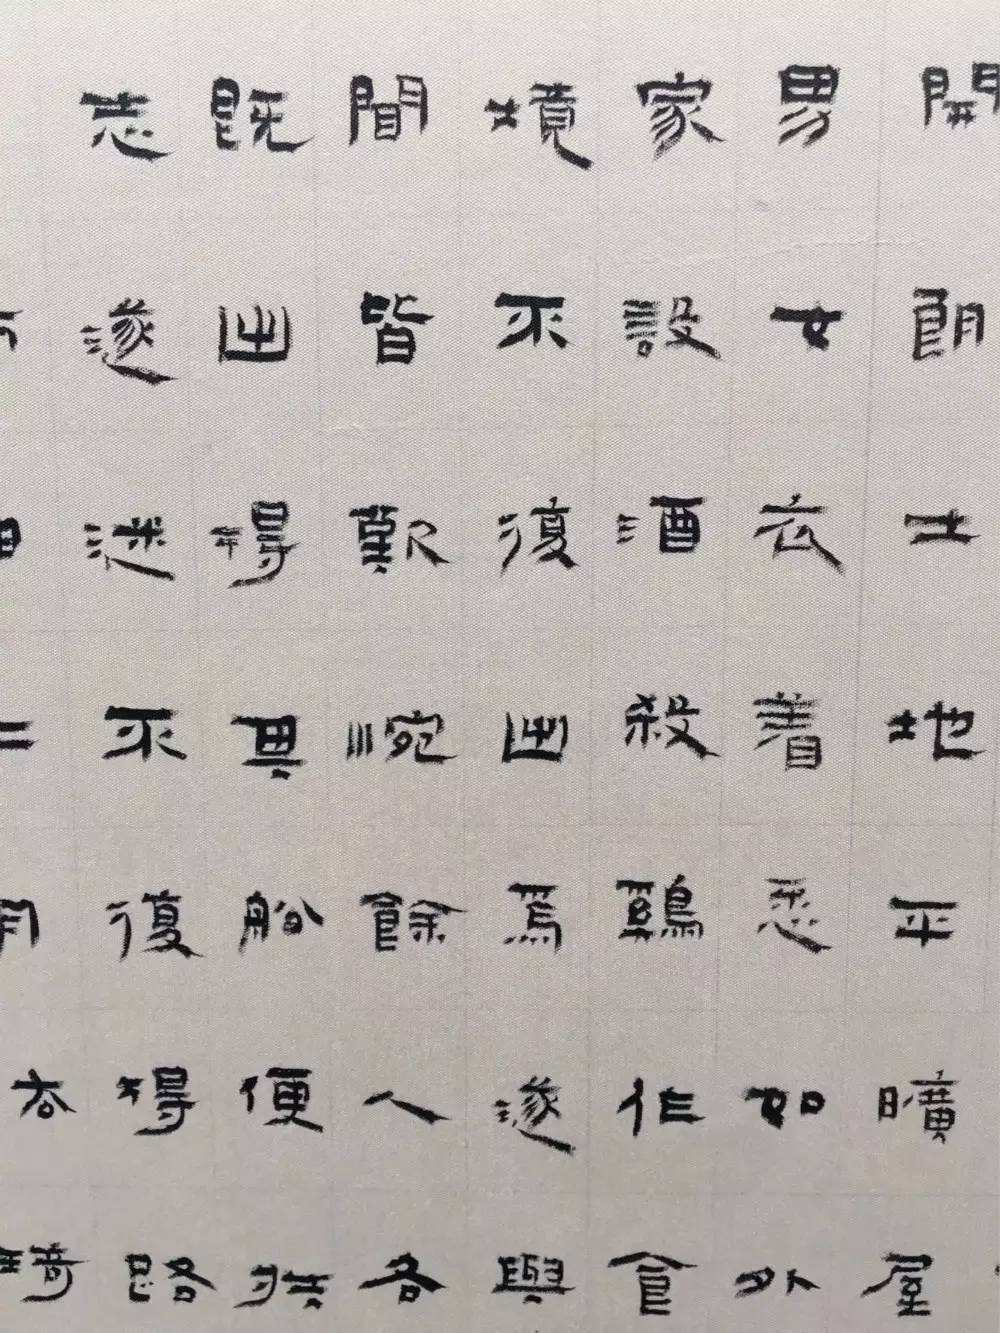 開朗土地平曠屋
男女衣着悉如外
家設酒殺鷄作食
境不復出焉遂與
間皆歎惋餘人各
既出得其船便扶
志遂迷不復得路